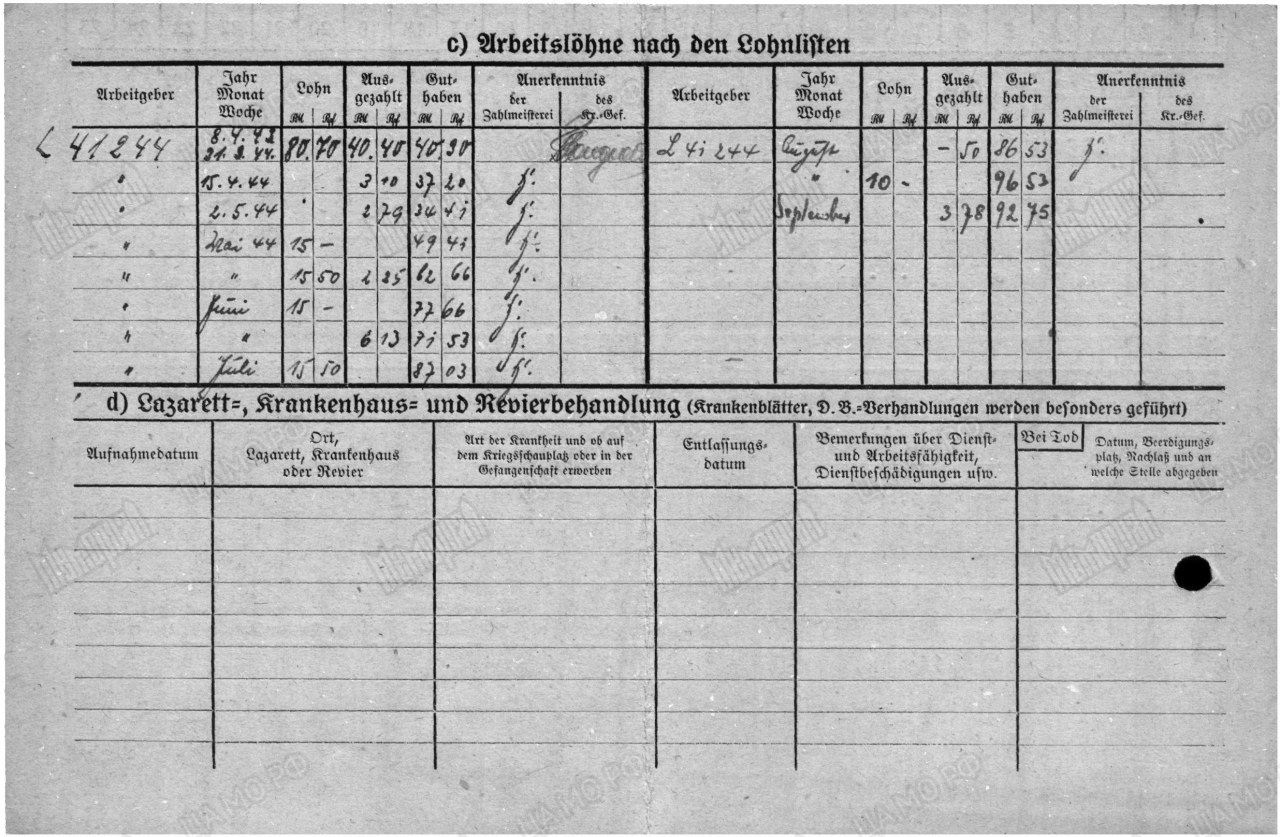 c) Arbeitslöhne nach den Lohnlisten
Arbeitgeber Jahr Monat Woche Lohn RM Rpf Ausgezahlt RM Rpf Guthaben RM Rpf Anerkenntnis der Zahlmeisterei des Kr.-Gef. Arbeitgeber Jahr Monat Woche Lohn RM Rpf Ausgezahlt RM Rpf Guthaben RM Rpf Anerkenntnis der Zahlmeisterei des Kr.-Gef.
L 41244 8.4.43 21.3.44. 80.70 40.40 40.30 L 41 244 August - 50 86 53
" 15.4.44 3 10 37 20 " 10 - 96 53
" 2.5.44 2 79 34 41 September 3 78 92 75
" Mai 44 15 - 49 41
" " 15 50 2 25 62 66
" Juni 15 - 77 66
" " 6 13 71 53
" Juli 15 50 87 03
d) Lazarett-, Krankenhaus- und Revierbehandlung (Krankenblätter, D. B.-Verhandlungen werden besonders geführt)
Aufnahmedatum
Ort,
Lazarett, Krankenhaus
oder Revier
Art der Krankheit und ob auf
dem Kriegsschauplatz oder in der
Gefangenschaft erworben
Entlassungs-
datum
Bemerkungen über Dienst-
und Arbeitsfähigkeit,
Dienstbeschädigungen usw.
Bei Tod
Datum, Beerdigungs-
platz, Nachlaß und an
welche Stelle abgegeben
ЦАМО РФ
Мемориал